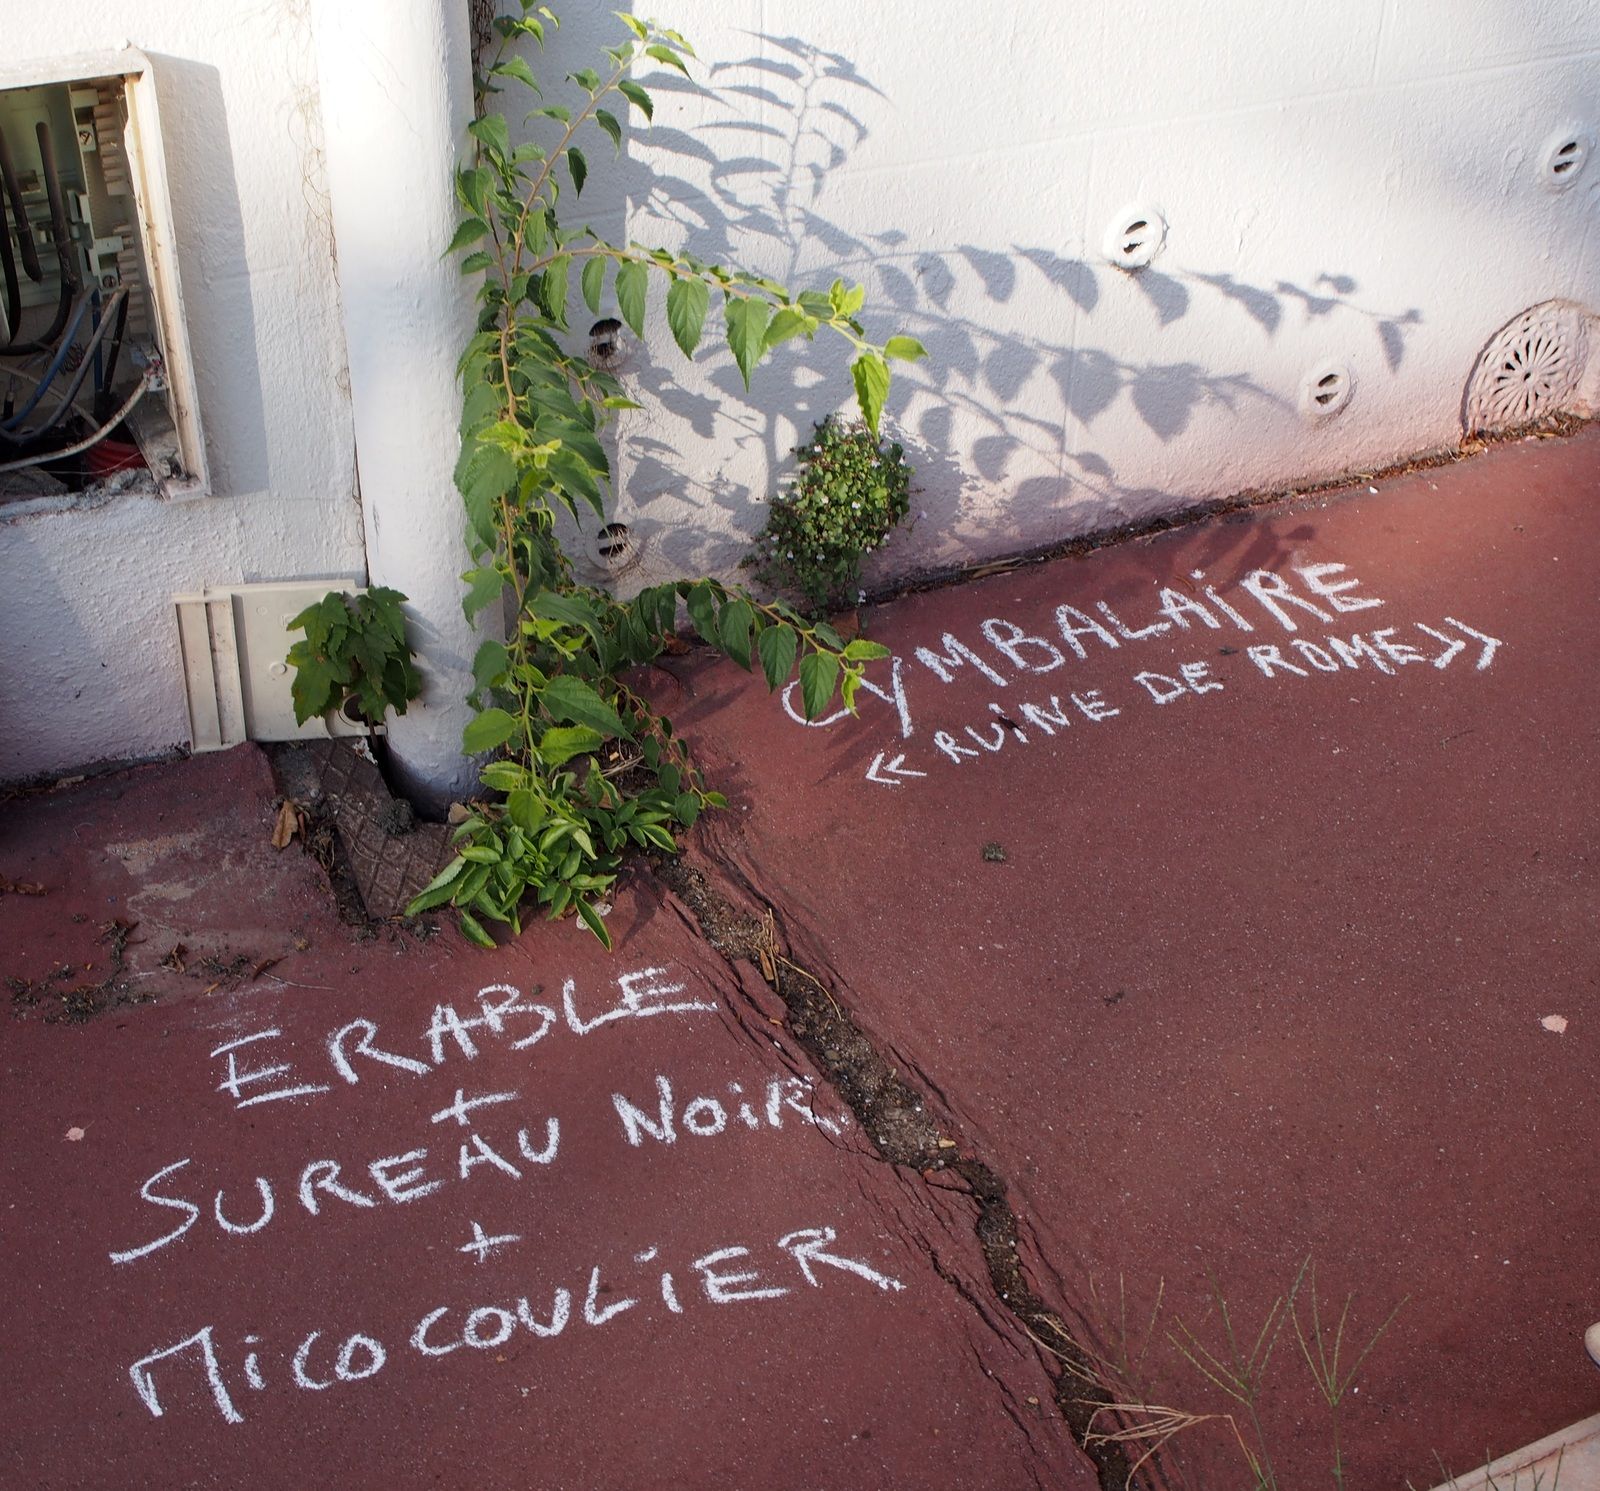 CYMBALAiRE
« RUiNE DE ROME »
ERABLE
+
SUREAU NOiR
+
MicocouLiER